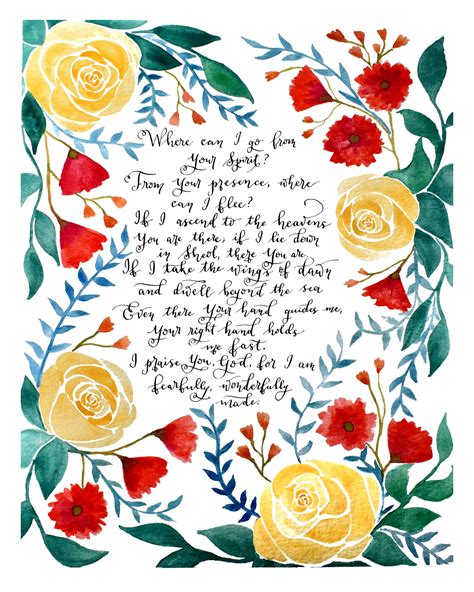 Where can I go from
Your Spirit?
From your presence, where
can I flee?
If I ascend to the heavens
You are there, if I lie down
in Sheol, there You are.
If I take the wings of dawn
and dwell beyond the sea
Even there Your hand guides me,
Your right hand holds
me fast.
I praise You, God, for I am
fearfully, wonderfully
made.